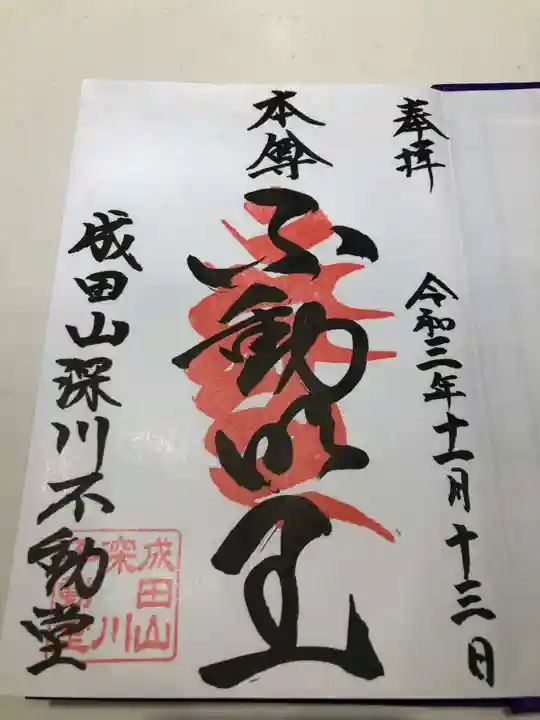 奉拝
令和三年十一月十三日
本尊
不動明王
成田山深川不動堂
成田山
深川